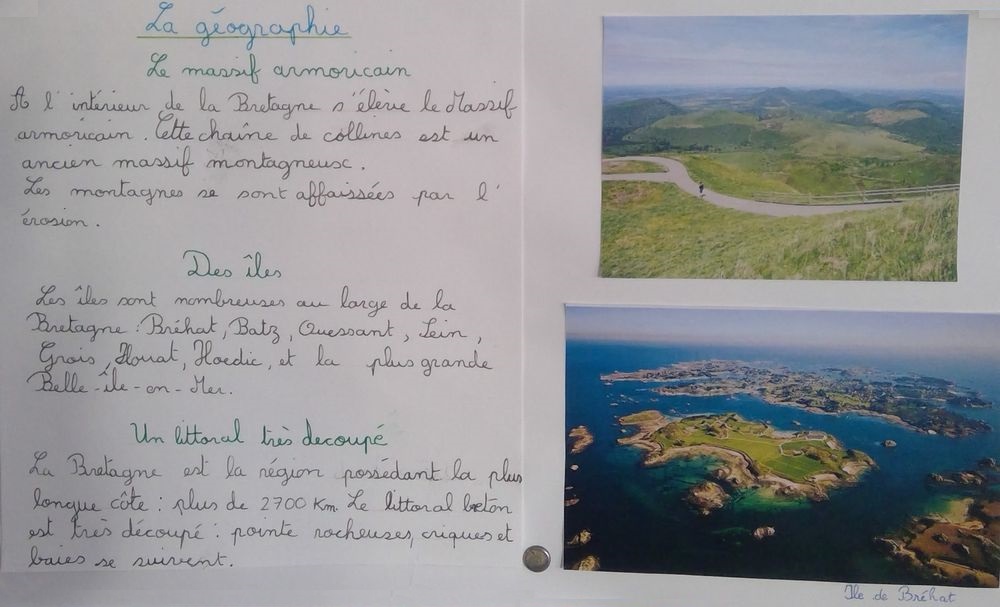 La géographie
Le massif armoricain
A l'intérieur de la Bretagne s'élève le Massif
armoricain. Cette chaîne de collines est un
ancien massif montagneusc.
Les montagnes se sont affaissées par l'
érosion.
Des îles
Les îles sont nombreuses au large de la
Bretagne : Bréhat, Batz, Ouessant, Sein,
Grois, Houat, Hoedic, et la plus grande
Belle-Île-en-Mer.
Un littoral très decoupé
La Bretagne est la région possédant la plus
longue côte : plus de 2700 Km Le littoral breton
est très découpé : pointe rocheuses, criques et
baies se suivent.
Ile de Bréhat